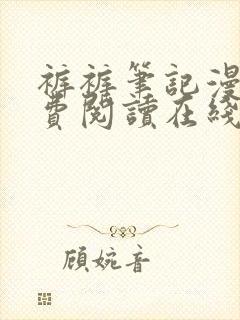 裤裤筆記漫
費閱讀在綫
顾婉音